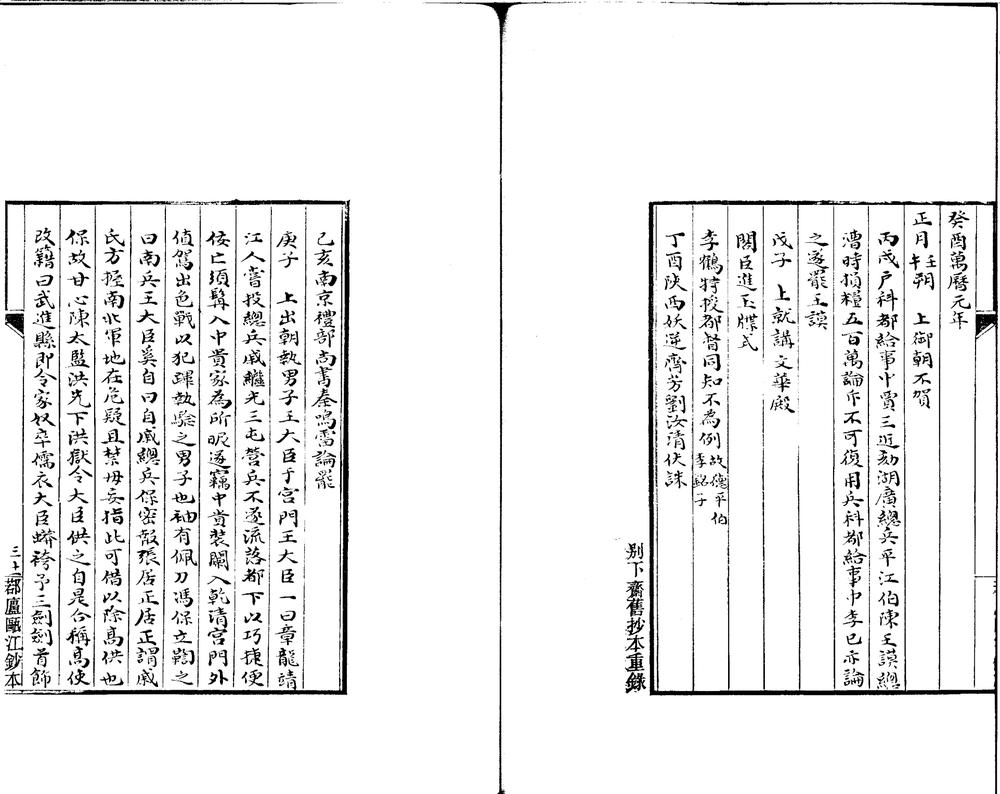 癸酉萬曆元年
正月壬午朔　上御朝不賀
丙戌戶科都給事中賈三近劾湖廣總兵平江伯陳王謨總
漕時損糧五百萬論斥不可復用兵科都給事中李已亦論
之遂罷王謨
戊子　上就講文華殿
閣臣進玉牒式
李鶴特授都督同知不為例故德平伯李銘子
丁酉陝西妖逆齊芳劉汝清伏誅
別下齋舊抄本重錄
己亥南京禮部尚書秦鳴雷論罷
庚子　上出朝執男子王大臣于宮門王大臣一曰章龍靖
江人嘗投總兵戚繼光三屯營兵不遂流落都下以巧捷便
佞亡須髯入中貴家為所昵遂竊中貴裝闌入乾清宮門外
值駕出色戰以犯蹕執驗之男子也袖有佩刀馮保立鞫之
曰南兵王大臣奚自曰自戚總兵保密報張居正居正謂戚
氏方握南北軍地在危疑且禁毋妄指此可借以除高供也
保故甘心陳太監洪先下洪獄令大臣供之自是合稱高使
改籍曰武進縣即令家奴卒儒衣大臣蟒袴予三劍劍首飾
三十二都廬甌江鈔本